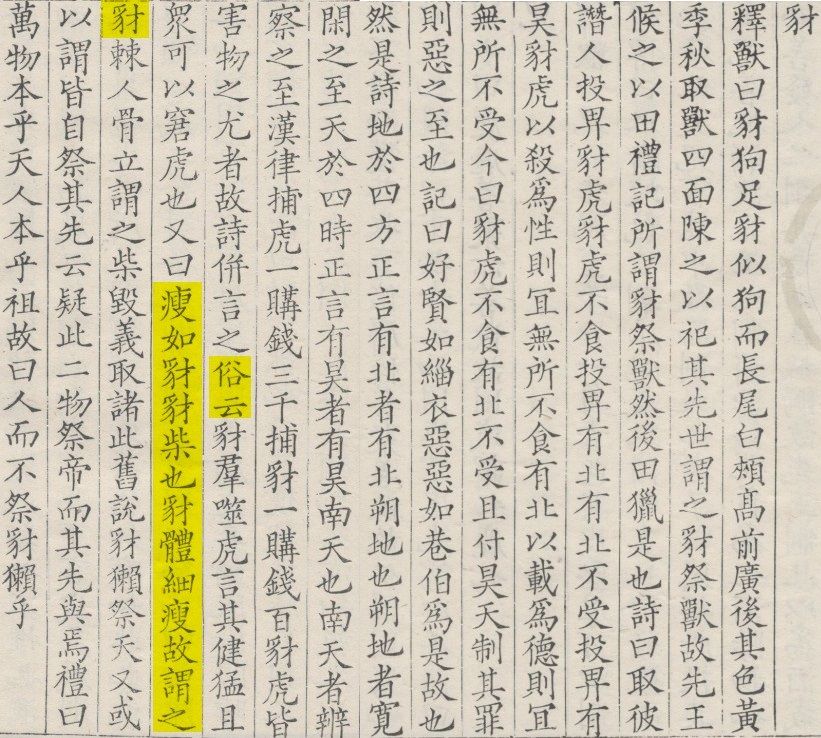 豺
釋獸曰豺狗足豺似狗而長尾白頰髙前廣後其色黃
季秋取獸四面陳之以祀其先世謂之豺祭獸故先王
候之以田禮記所謂豺祭獸然後田獵是也詩曰取彼
譖人投畀豺虎豺虎不食投畀有北有北不受投畀有
昊豺虎以殺爲性則冝無所不食有北以載爲德則冝
無所不受今曰豺虎不食有北不受且付昊天制其罪
則惡之至也記曰好賢如緇衣惡惡如巷伯爲是故也
然是詩地於四方正言有北者有北朔地也朔地者寛
閑之至天於四時正言有昊者有昊南天也南天者辨
察之至漢律捕虎一購錢三千捕豺一購錢百豺虎皆
害物之尤者故詩併言之俗云豺羣噬虎言其健猛且
衆可以窘虎也又曰瘦如豺豺柴也豺體細瘦故謂之
豺棘人骨立謂之柴毀義取諸此舊說豺獺祭天又或
以謂皆自祭其先云疑此二物祭帝而其先與焉禮曰
萬物本乎天人本乎祖故曰人而不祭豺獺乎